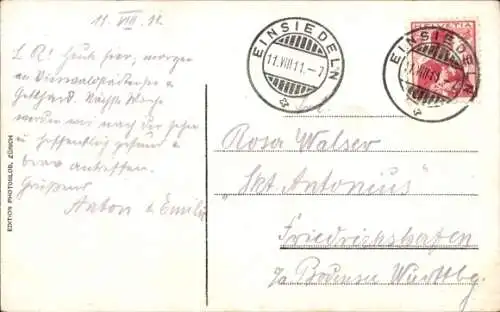 11. VIII. 11.
L. R! Heute hier, morgen
an Vierwaldstättersee u
Gotthard. Nächste Woche
werden wir nach dir sehen
u hoffentlich gesund u
brav antreffen.
Grüssend
Anton u Emilie
EDITION PHOTOGLOB, ZÜRICH
EINSIEDELN
11.VIII 11.-7
HELVETIA
EINSIEDELN
Rosa Walser
"Skt Antonius"
Friedrichshafen
a/ Bodensee Württbg.